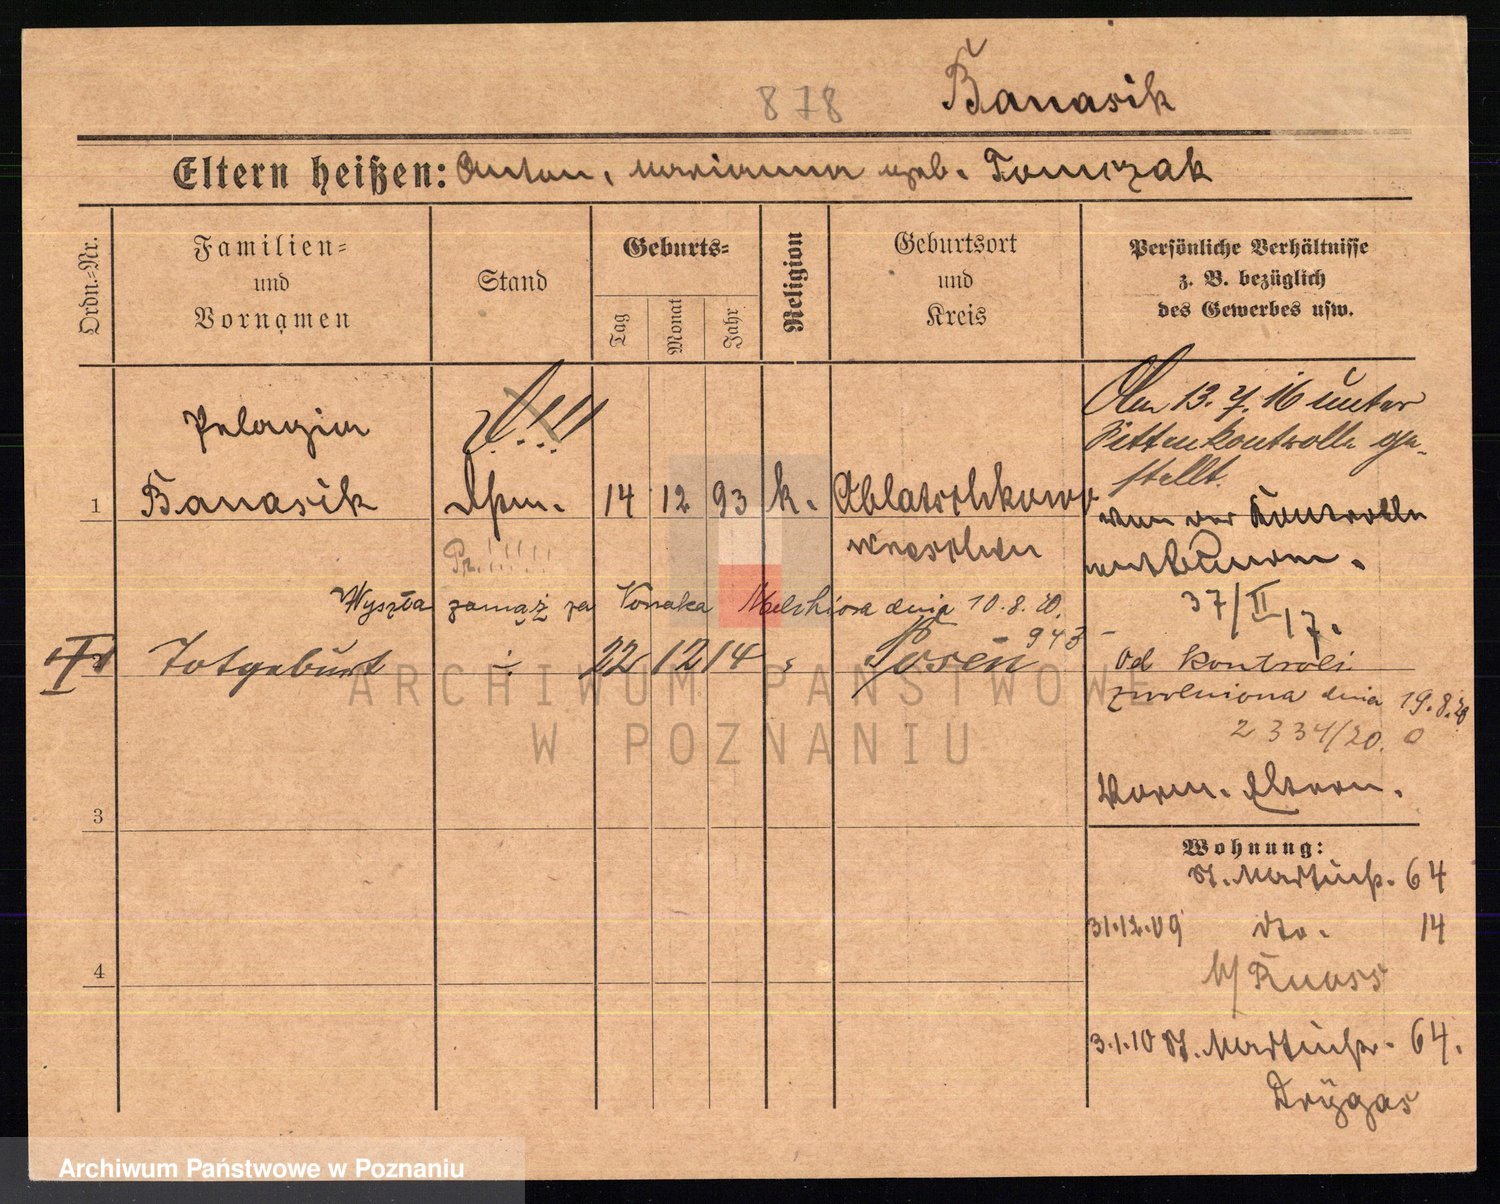 878
Banasik
Eltern heißen: Anton, Marianna geb. Tomczak
Ordn.-Nr.
Familien-
und
Vornamen
Stand
Geburts-
Tag
Monat
Jahr
Religion
Geburtsort
und
Kreis
Persönliche Verhältnisse
z. B. bezüglich
des Gewerbes usw.
Pelagia
1 Banasik 14 12 93 k.
Wreschen
Am 13.7.16 unter
Sittenkontrolle ge-
stellt.
von der Kontrolle
entbunden.
37/II 17.
Wyszła zamąż za Vonaka Melchiora dnia 10.8.20.
943
Totgeburt 22 12 14 Posen
Od kontroli
zwolniona dnia 19.8.20
2334/20.
Vorm. Eltern.
3
Wohnung:
St. Martinstr. 64
31.12.09 dto. 14
b/ Knass
4
3.1.10 St. Martinstr. 64.
Drygas
ARCHIWUM PAŃSTWOWE
W POZNANIU
Archiwum Państwowe w Poznaniu